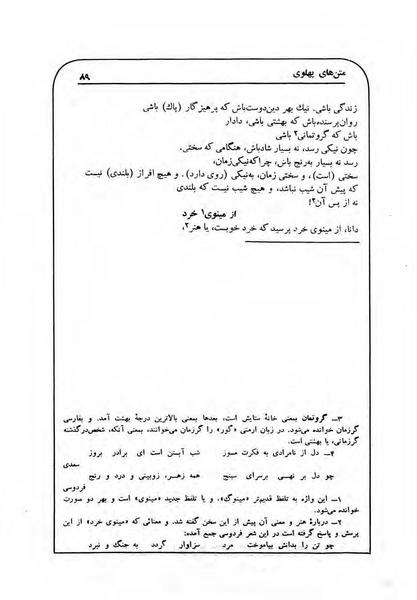 متن‌های پهلوی
۸۹
زندگی باشی. نیك بهر دین‌دوست‌باش که پرهیزگار (پاك) باشی
روان‌پرسنده‌باش که بهشتی باشی، دادار
باش که گروتمانی۳ باشی
چون نیکی رسد، نه بسیار شادباش، هنگامی که سختی.
رسد نه بسیار به‌رنج باش، چراکه‌نیکی‌زمان،
سختی (است)، و سختی زمان، به‌نیکی (روی دارد). و هیچ افراز (بلندی) نیست
که پیش آن شیب نباشد، و هیچ شیب نیست که بلندی
نه از پس آن۴!
از مینوی۱ خرد
دانا، از مینوی خرد پرسید که خرد خوبست، یا هنر۲،
۳ـ گروتمان بمعنی خانهٔ ستایش است، بعدها بمعنی بالاترین درجهٔ بهشت آمد. و بفارسی
گرزمان خوانده می‌شود. در زبان ارمنی «گور» را گرزمان می‌خوانند، بمعنی آنکه، شخص‌درگذشته
گرزمانی، یا بهشتی است.
۴ـ دل از نامرادی به فکرت مسوز شب آبستن است ای برادر بروز
سعدی
چو دل بر نهی برسرای سپنج همه زهر، زوبینی و درد و رنج
فردوسی
۱ـ این واژه به تلفظ قدیم‌تر «مینوگ»، و یا تلفظ جدید «مینوی» است و بهر دو صورت
خوانده می‌شود.
۲ـ دربارهٔ هنر و معنی آن پیش از این سخن گفته شد. و معنائی که «مینوی خرد» از این
پرسش و پاسخ گرفته است در این شعر فردوسی جمع آمده:
چو تن را بدانش بیاموخت مرد سزاوار گردد به جنگ و نبرد